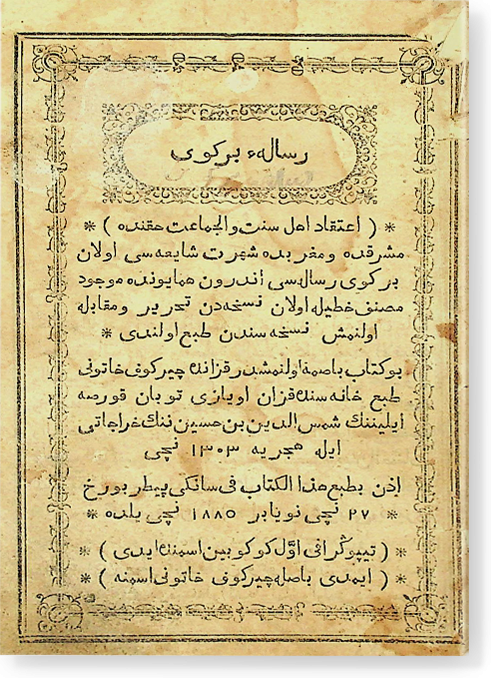 رسالهء بركوى
* ( اعتقاد اهل سنت والجماعت حقنده ) *
مشرقده ومغربده شهرت شايعه سى اولان
بركوى رساله سى اندرون همايونده موجود
مصنف خطيله اولان نسخه دن تحرير ومقابله
اولنمش نسخه سندن طبع اولندى *
بوكتاب باصمه اولنمشدر قزانده چيركوف خاتونى
طبع خانه سنده قزان اويازى توبان قورصه
ايليننك شمس الدين بن حسين ننك خراجاتى
ايله هجريه ١٣٠٣ نچى
اذن بطبع هذا الكتاب فى سانكى پيطربورخ
* ٢٧ نچى نويابر ١٨٨٥ نچى يلده *
* ( تيپوگرافى اوّل كوكوبين اسمنده ايدى ) *
* ( ايمدى باصله چيركوف خاتونى اسمنه ) *